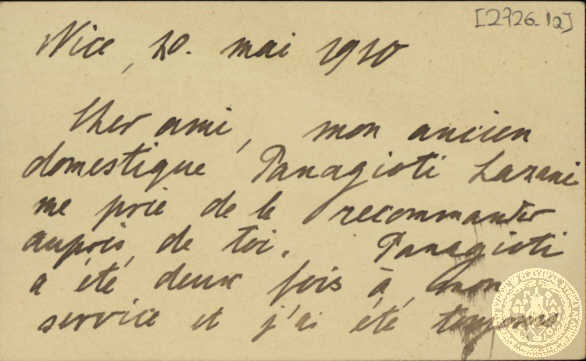 [2726.1a]
Nice, 20. mai 1910
Cher ami, mon ancien
domestique Panagioti Lazani
me prie de le recommander
auprès de toi. Panagioti
a été deux fois à mon
service et j'ai été toujours